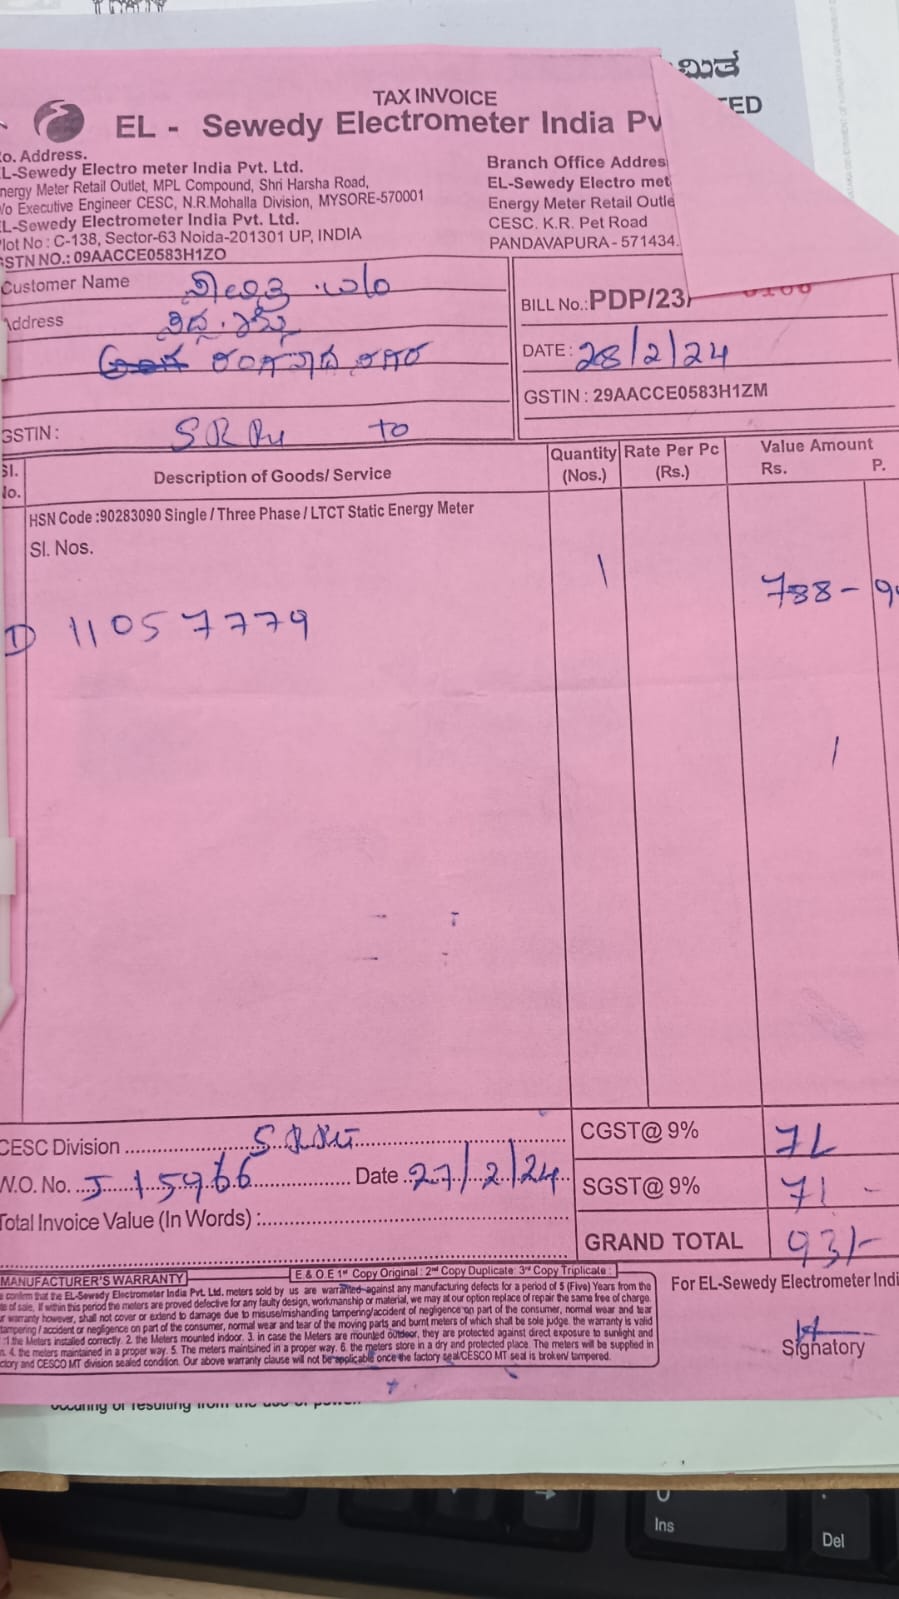 TAX INVOICE
EL - Sewedy Electrometer India Pv
o. Address.
L-Sewedy Electro meter India Pvt. Ltd.
nergy Meter Retail Outlet, MPL Compound, Shri Harsha Road,
/o Executive Engineer CESC, N.R.Mohalla Division, MYSORE-570001
L-Sewedy Electrometer India Pvt. Ltd.
lot No : C-138, Sector-63 Noida-201301 UP, INDIA
GSTN NO.: 09AACCE0583H1ZO
Branch Office Addres
EL-Sewedy Electro met
Energy Meter Retail Outle
CESC. K.R. Pet Road
PANDAVAPURA - 571434.
ಮಿತ
TED
Customer Name
Address
BILL No.: PDP/23/
DATE : 28/2/24
GSTIN : 29AACCE0583H1ZM
GSTIN :
to
Sl. No.
Description of Goods/ Service
Quantity (Nos.)
Rate Per Pc (Rs.)
Value Amount Rs. P.
HSN Code :90283090 Single / Three Phase / LTCT Static Energy Meter
Sl. Nos.
1
788 - 9
1) 11057779
CESC Division
W.O. No. J 15966 Date 27/2/24
Total Invoice Value (In Words) :
CGST@ 9% 71
SGST@ 9% 71 -
GRAND TOTAL 931-
MANUFACTURER'S WARRANTY
E & O E 1st Copy Original : 2nd Copy Duplicate: 3rd Copy Triplicate :
confirm that the EL-Sewedy Electrometer India Pvt. Ltd. meters sold by us are warranted against any manufacturing defects for a period of 5 (Five) Years from the
e of sale, If within this period the meters are proved defective for any faulty design, workmanship or material, we may at our option replace of repair the same free of charge.
r warranty however, shall not cover or extend to damage due to misuse/mishanding tampering/accident of negligence on part of the consumer, normal wear and tear
tampering / accident or negligence on part of the consumer, normal wear and tear of the moving parts and burnt meters of which shall be sole judge. the warranty is valid
:1. the Meters installed correctly. 2. the Meters mounted indoor. 3. in case the Meters are mounted outdoor, they are protected against direct exposure to sunlight and
n. 4. the meters maintained in a proper way. 5. The meters maintained in a proper way. 6. the meters store in a dry and protected place. The meters will be supplied in
ctory and CESCO MT division sealed condition. Our above warranty clause will not be applicable once the factory seal/CESCO MT seal is broken/ tampered.
For EL-Sewedy Electrometer Indi
Signatory
Ins
Del